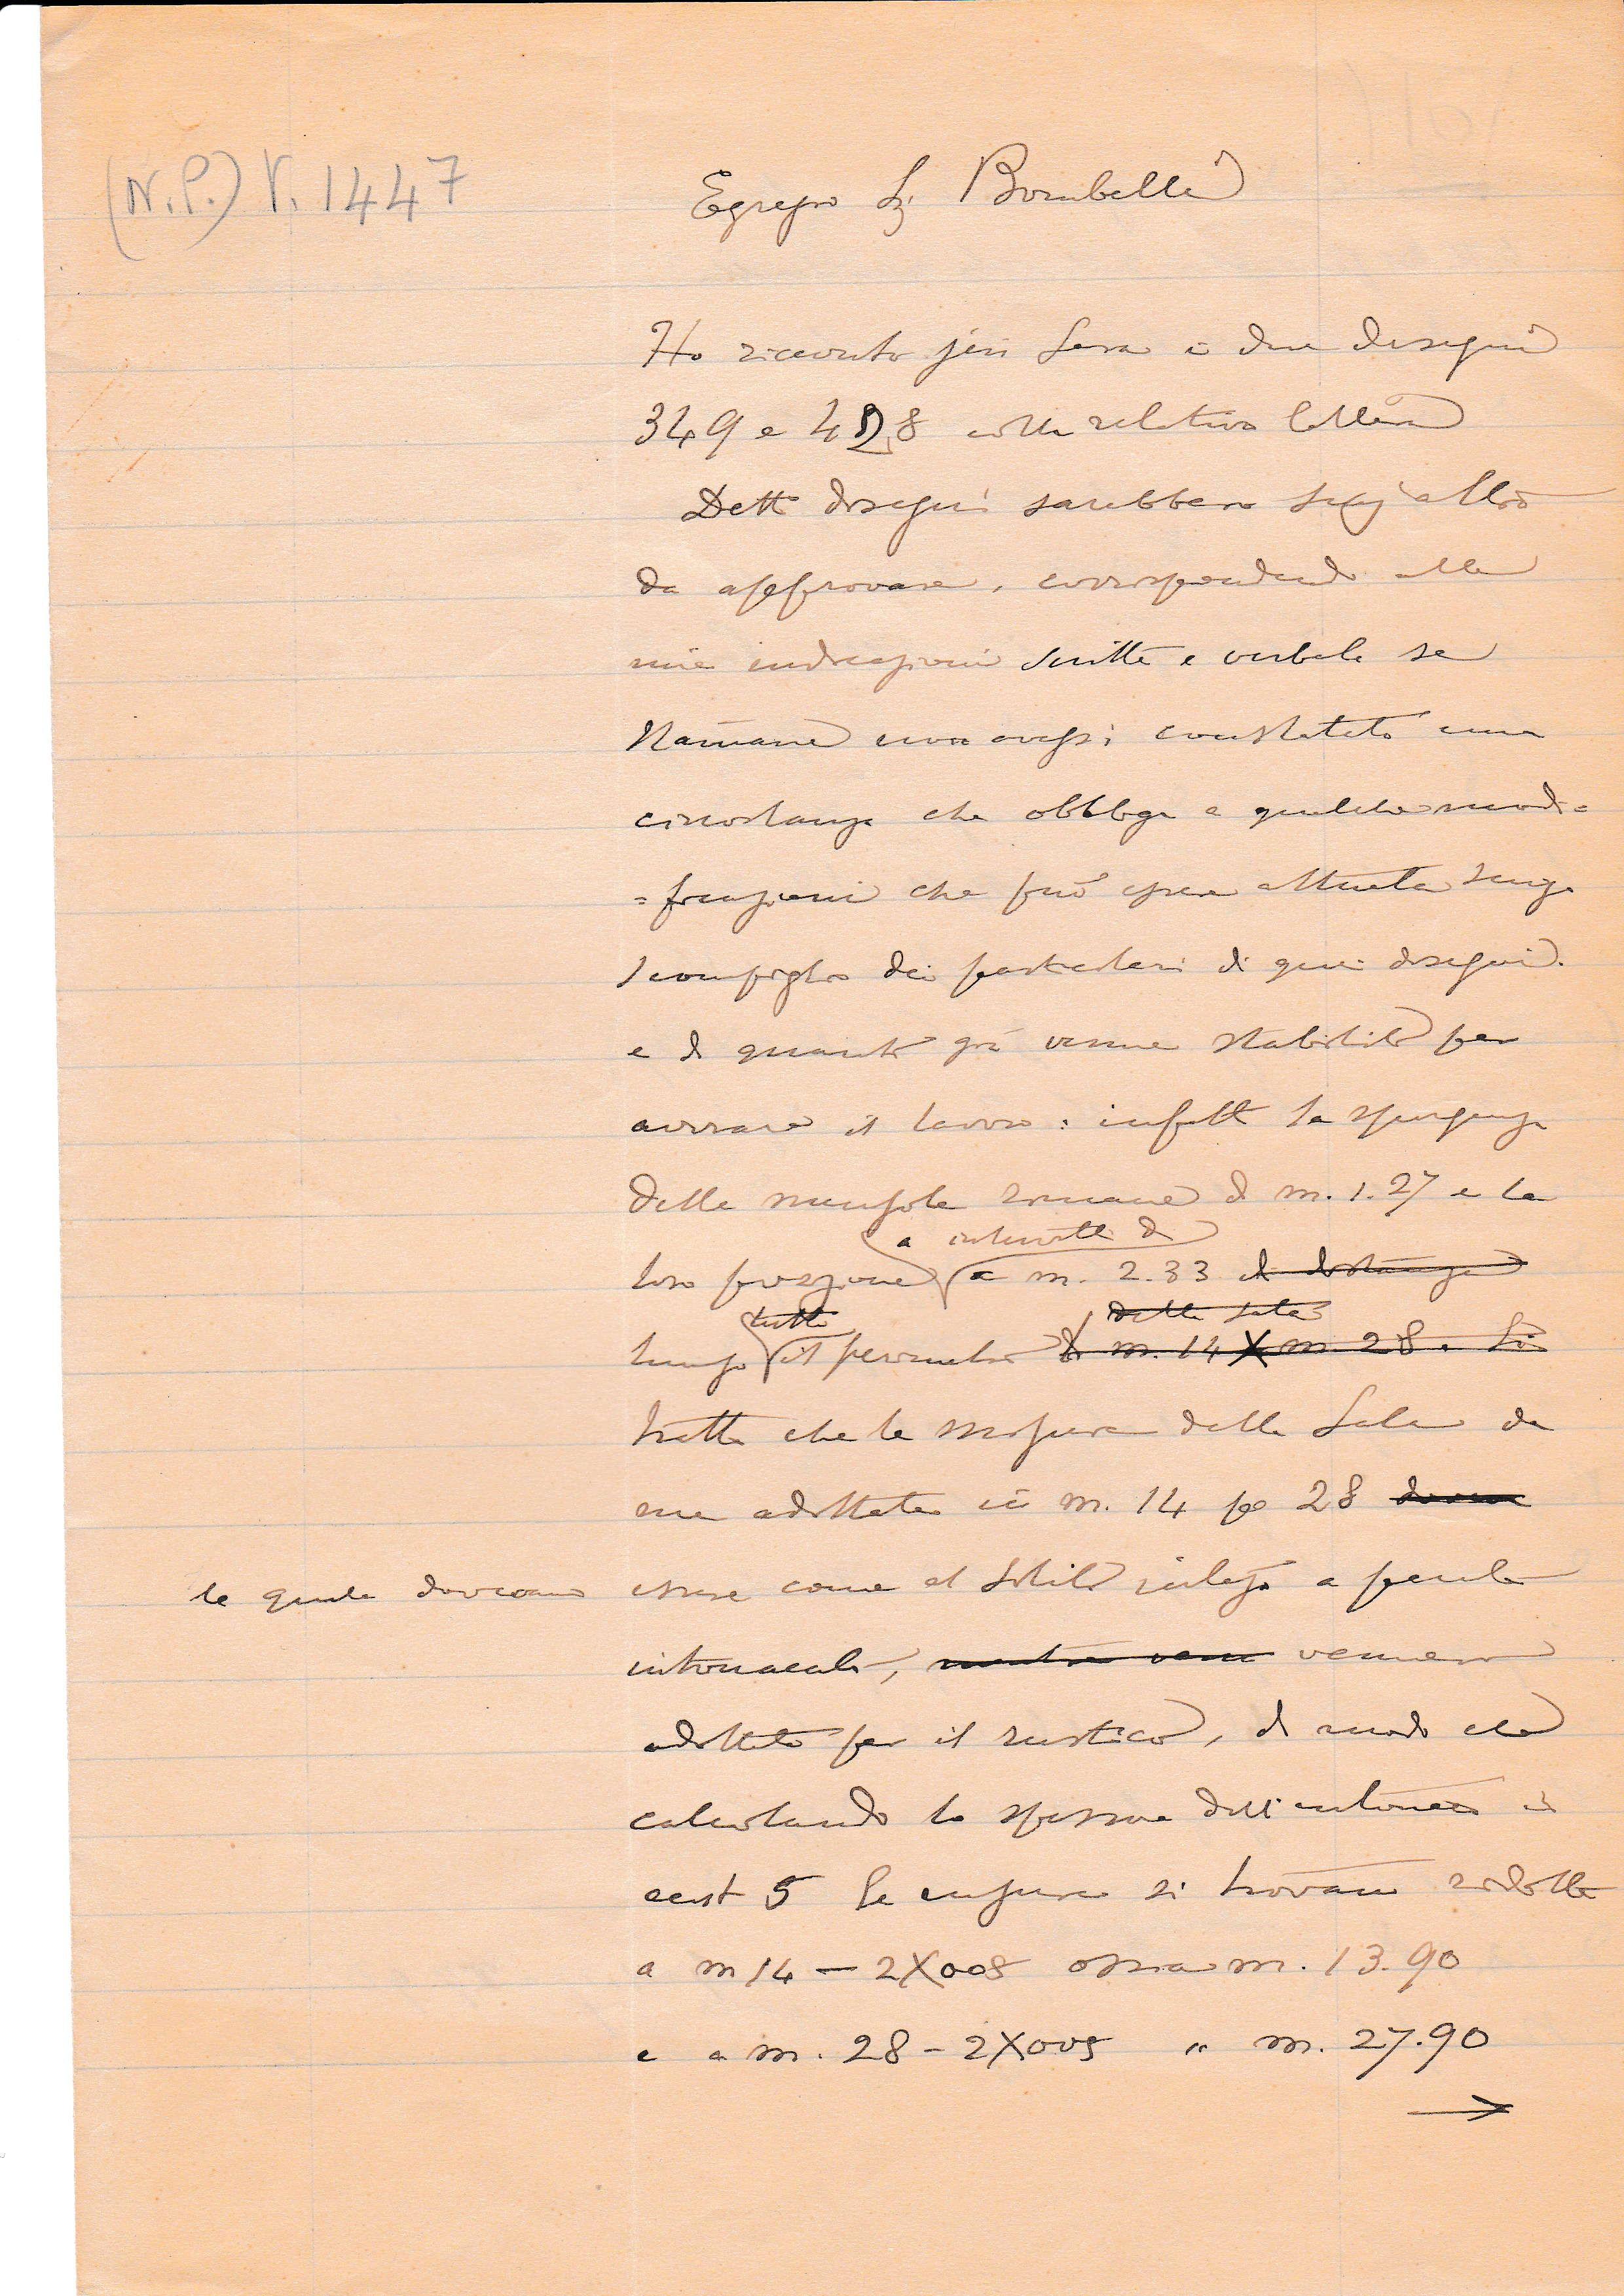 (N.P.) V. 1447
Egregio Sig Bombelli
Ho ricevuto jeri sera i due disegni
349 e 428 colla relativa lettera
Detti disegni sarebbero senz'altro
da approvare, corrispondendo alle
mie indicazioni scritte e verbali se
stamane non avessi constatato una
circostanza che obbliga a qualche modi=
=ficazioni che può essere attuata senza
scompiglio dei particolari di quei disegni.
e di quanto già venne stabilito per
avviare il lavoro: infatti la sporgenza
delle mensole rimane di m. 1.27 e la
a intervalli di
loro posizione a m. 2.33 di distanza
tutto
della sala
lungo il perimetro di m. 14 X m 28. Si
tratta che le misure della Sala da
me adottate in m. 14 per 28
le quali dovevano essere come al solito a parete
intonacata, mentre venn vennero
adottate per il rustico, di modo che
calcolando lo spessore dell'intonaco in
cent 5 le misure si trovano ridotte
a m 14 - 2X008 ossia m. 13.90
e a m. 28 - 2X005 " m. 27.90
→